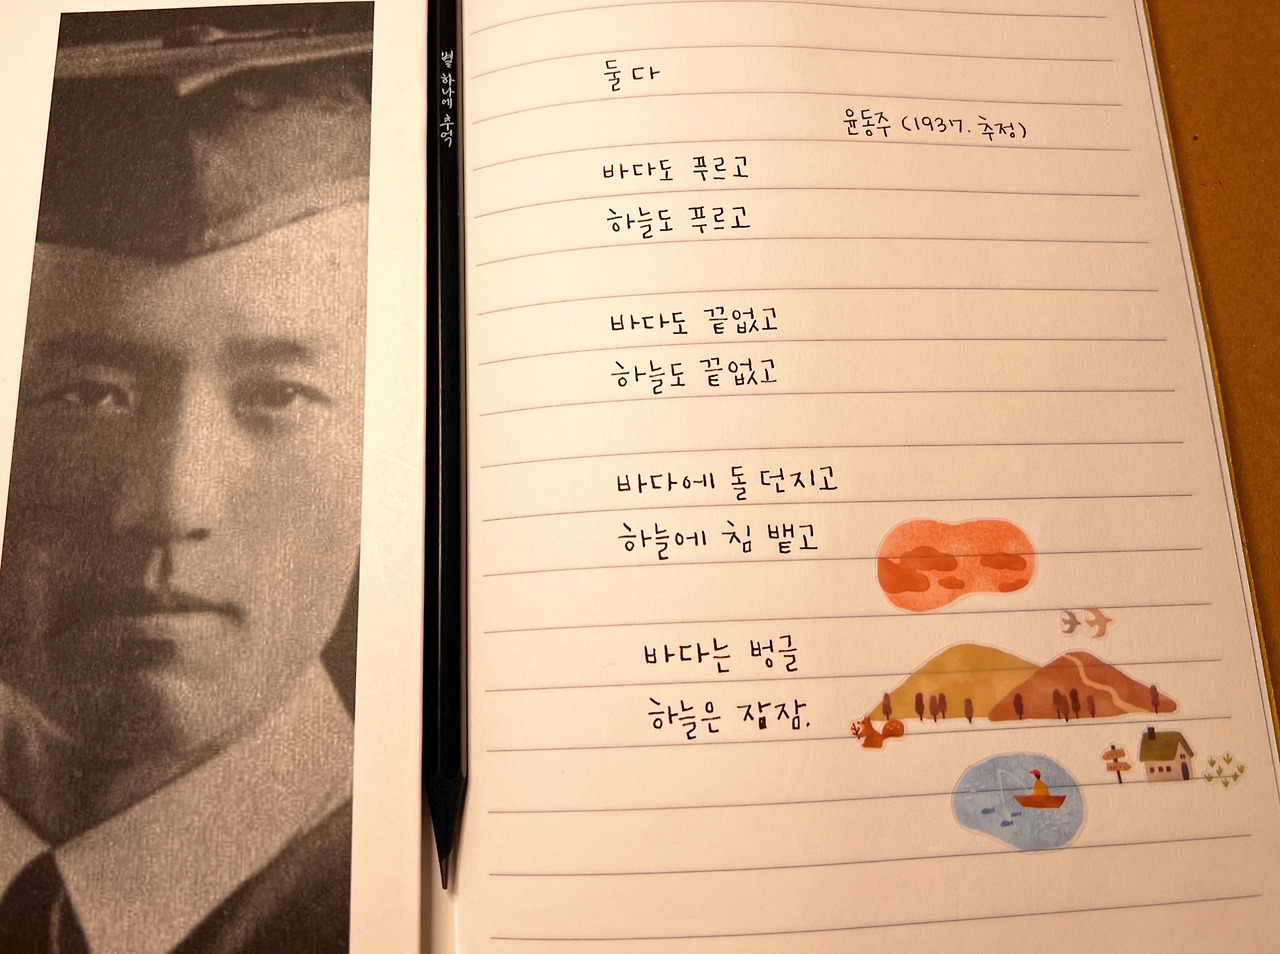 별 하나에 추억
둘 다
윤동주 (1937. 추정)
바다도 푸르고
하늘도 푸르고
바다도 끝없고
하늘도 끝없고
바다에 돌 던지고
하늘에 침 뱉고
바다는 벙글
하늘은 잠잠.